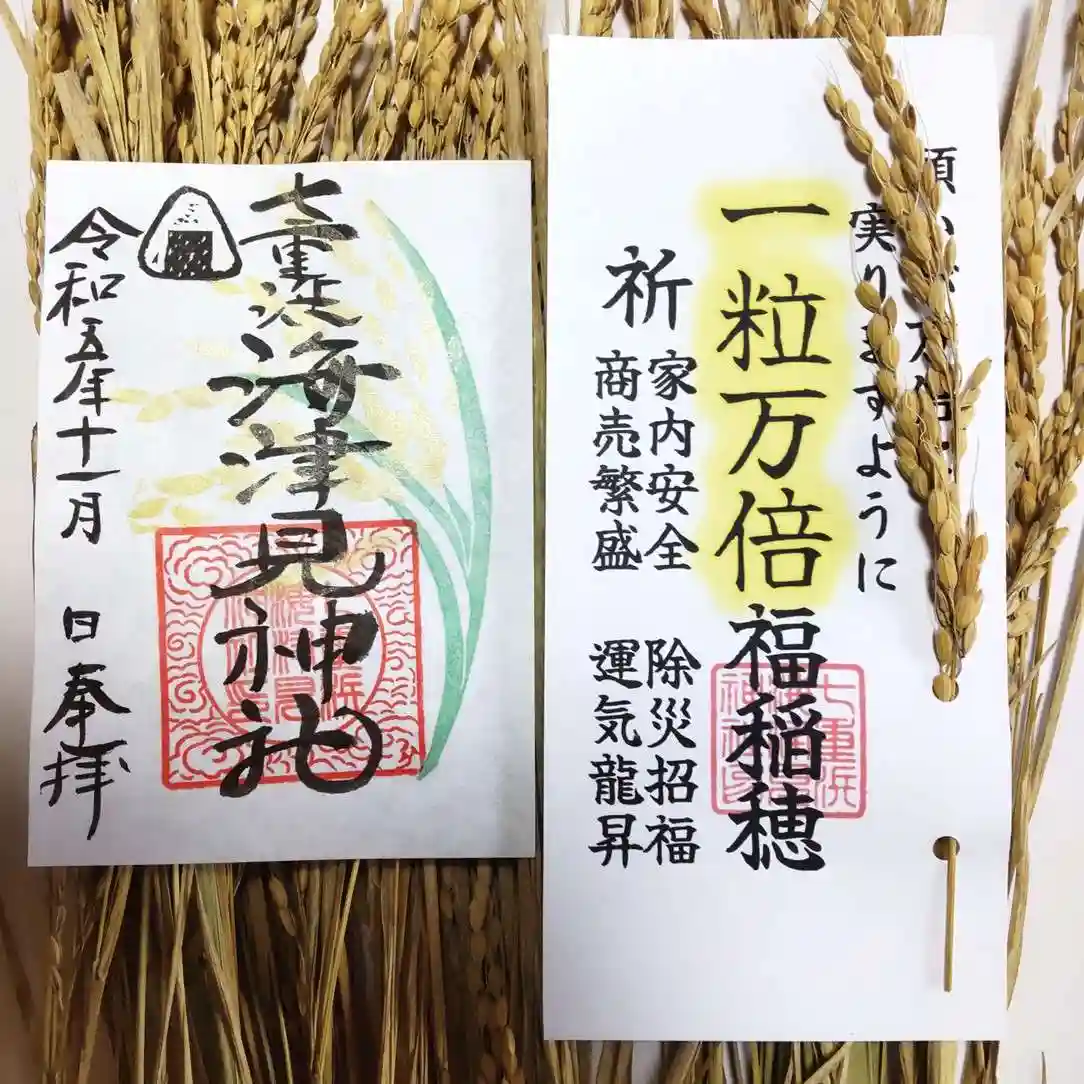 七重浜海津見神社
令和五年十一月 日奉拝
実りますように
一粒万倍福稲穂
祈
家内安全 除災招福
商売繁盛 運気龍昇
七重浜